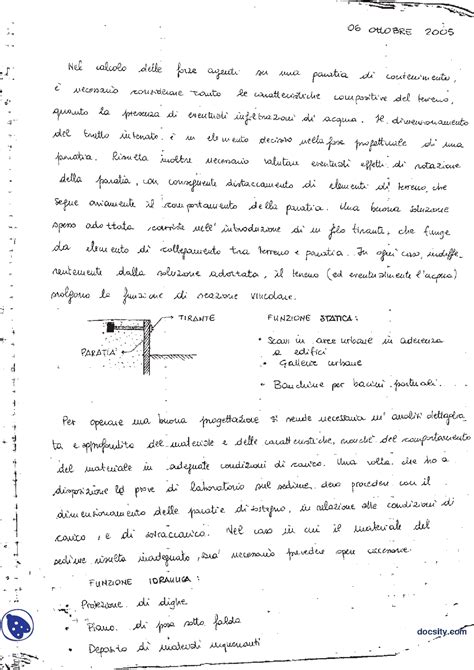 06 OTTOBRE 2005
Nel calcolo delle forze agenti su una paratia di contenimento,
è necessario considerare tanto le caratteristiche compositive del terreno,
quanto la presenza di eventuali infiltrazioni di acqua. Il dimensionamento
del tratto interrato è un elemento decisivo nella fase progettuale di una
paratia. Risulta inoltre necessario valutare eventuali effetti di rotazione
della paratia, con conseguente distaccamento di elementi di terreno, che
segue ovviamente il comportamento della paratia. Una buona soluzione
spesso adottata consiste nell' introduzione di un filo tirante, che funge
da elemento di collegamento tra terreno e paratia. In ogni caso, indiffe-
rentemente dalla soluzione adottata, il terreno (ed eventualmente l'acqua)
svolgono la funzione di reazione vincolare.
TIRANTE
PARATIA
FUNZIONE STATICA:
• Scavi in aree urbane in aderenza
a edifici
• Gallerie urbane
• Banchine per bacini portuali.
Per operare una buona progettazione si rende necessaria un' analisi dettaglia-
ta e approfondita del materiale e delle caratteristiche, nonché del comportamento
del materiale in adeguate condizioni di carico. Una volta che ho a
disposizione le prove di laboratorio sul sedime, devo procedere con il
dimensionamento delle paratie di sostegno, in relazione alle condizioni di
carico, e di sovraccarico. Nel caso in cui il materiale del
sedime risulta inadeguato, sarà necessario prevedere opere accessorie.
FUNZIONE IDRAULICA:
• Protezione di dighe
• Piano di posa sotto falda
• Deposito di materiali inquinanti
docsity.com